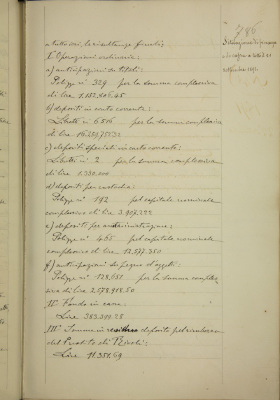 786
a tutto ieri, le risultanze furono:
I° Operazioni ordinarie:
a) anticipazioni su titoli:
Polizze n° 329 per la somma complessiva
di lire 1.112.806,45
b) depositi in conto corrente:
Libretti n° 6516 per la somma complessiva
di lire
c) depositi speciali in conto corrente:
Libretti n° 2 per la somma complessiva
di lire 1.330.000
d) depositi per custodia:
Polizze n° 192 pel capitale nominale
complessivo di lire 3.907.222
e) depositi per amministrazione:
Polizze n° 465 pel capitale nominale
complessivo di lire 12.577.350
f) anticipazioni su pegno d'oggetti:
Polizze n° 128,651 per la somma comples-
siva di lire 2.578.918.50
II° Fondo in cassa:
Lire 383.094.28
III° Somme in deposito pel
del Prestito di Napoli:
Lire 11.351.69